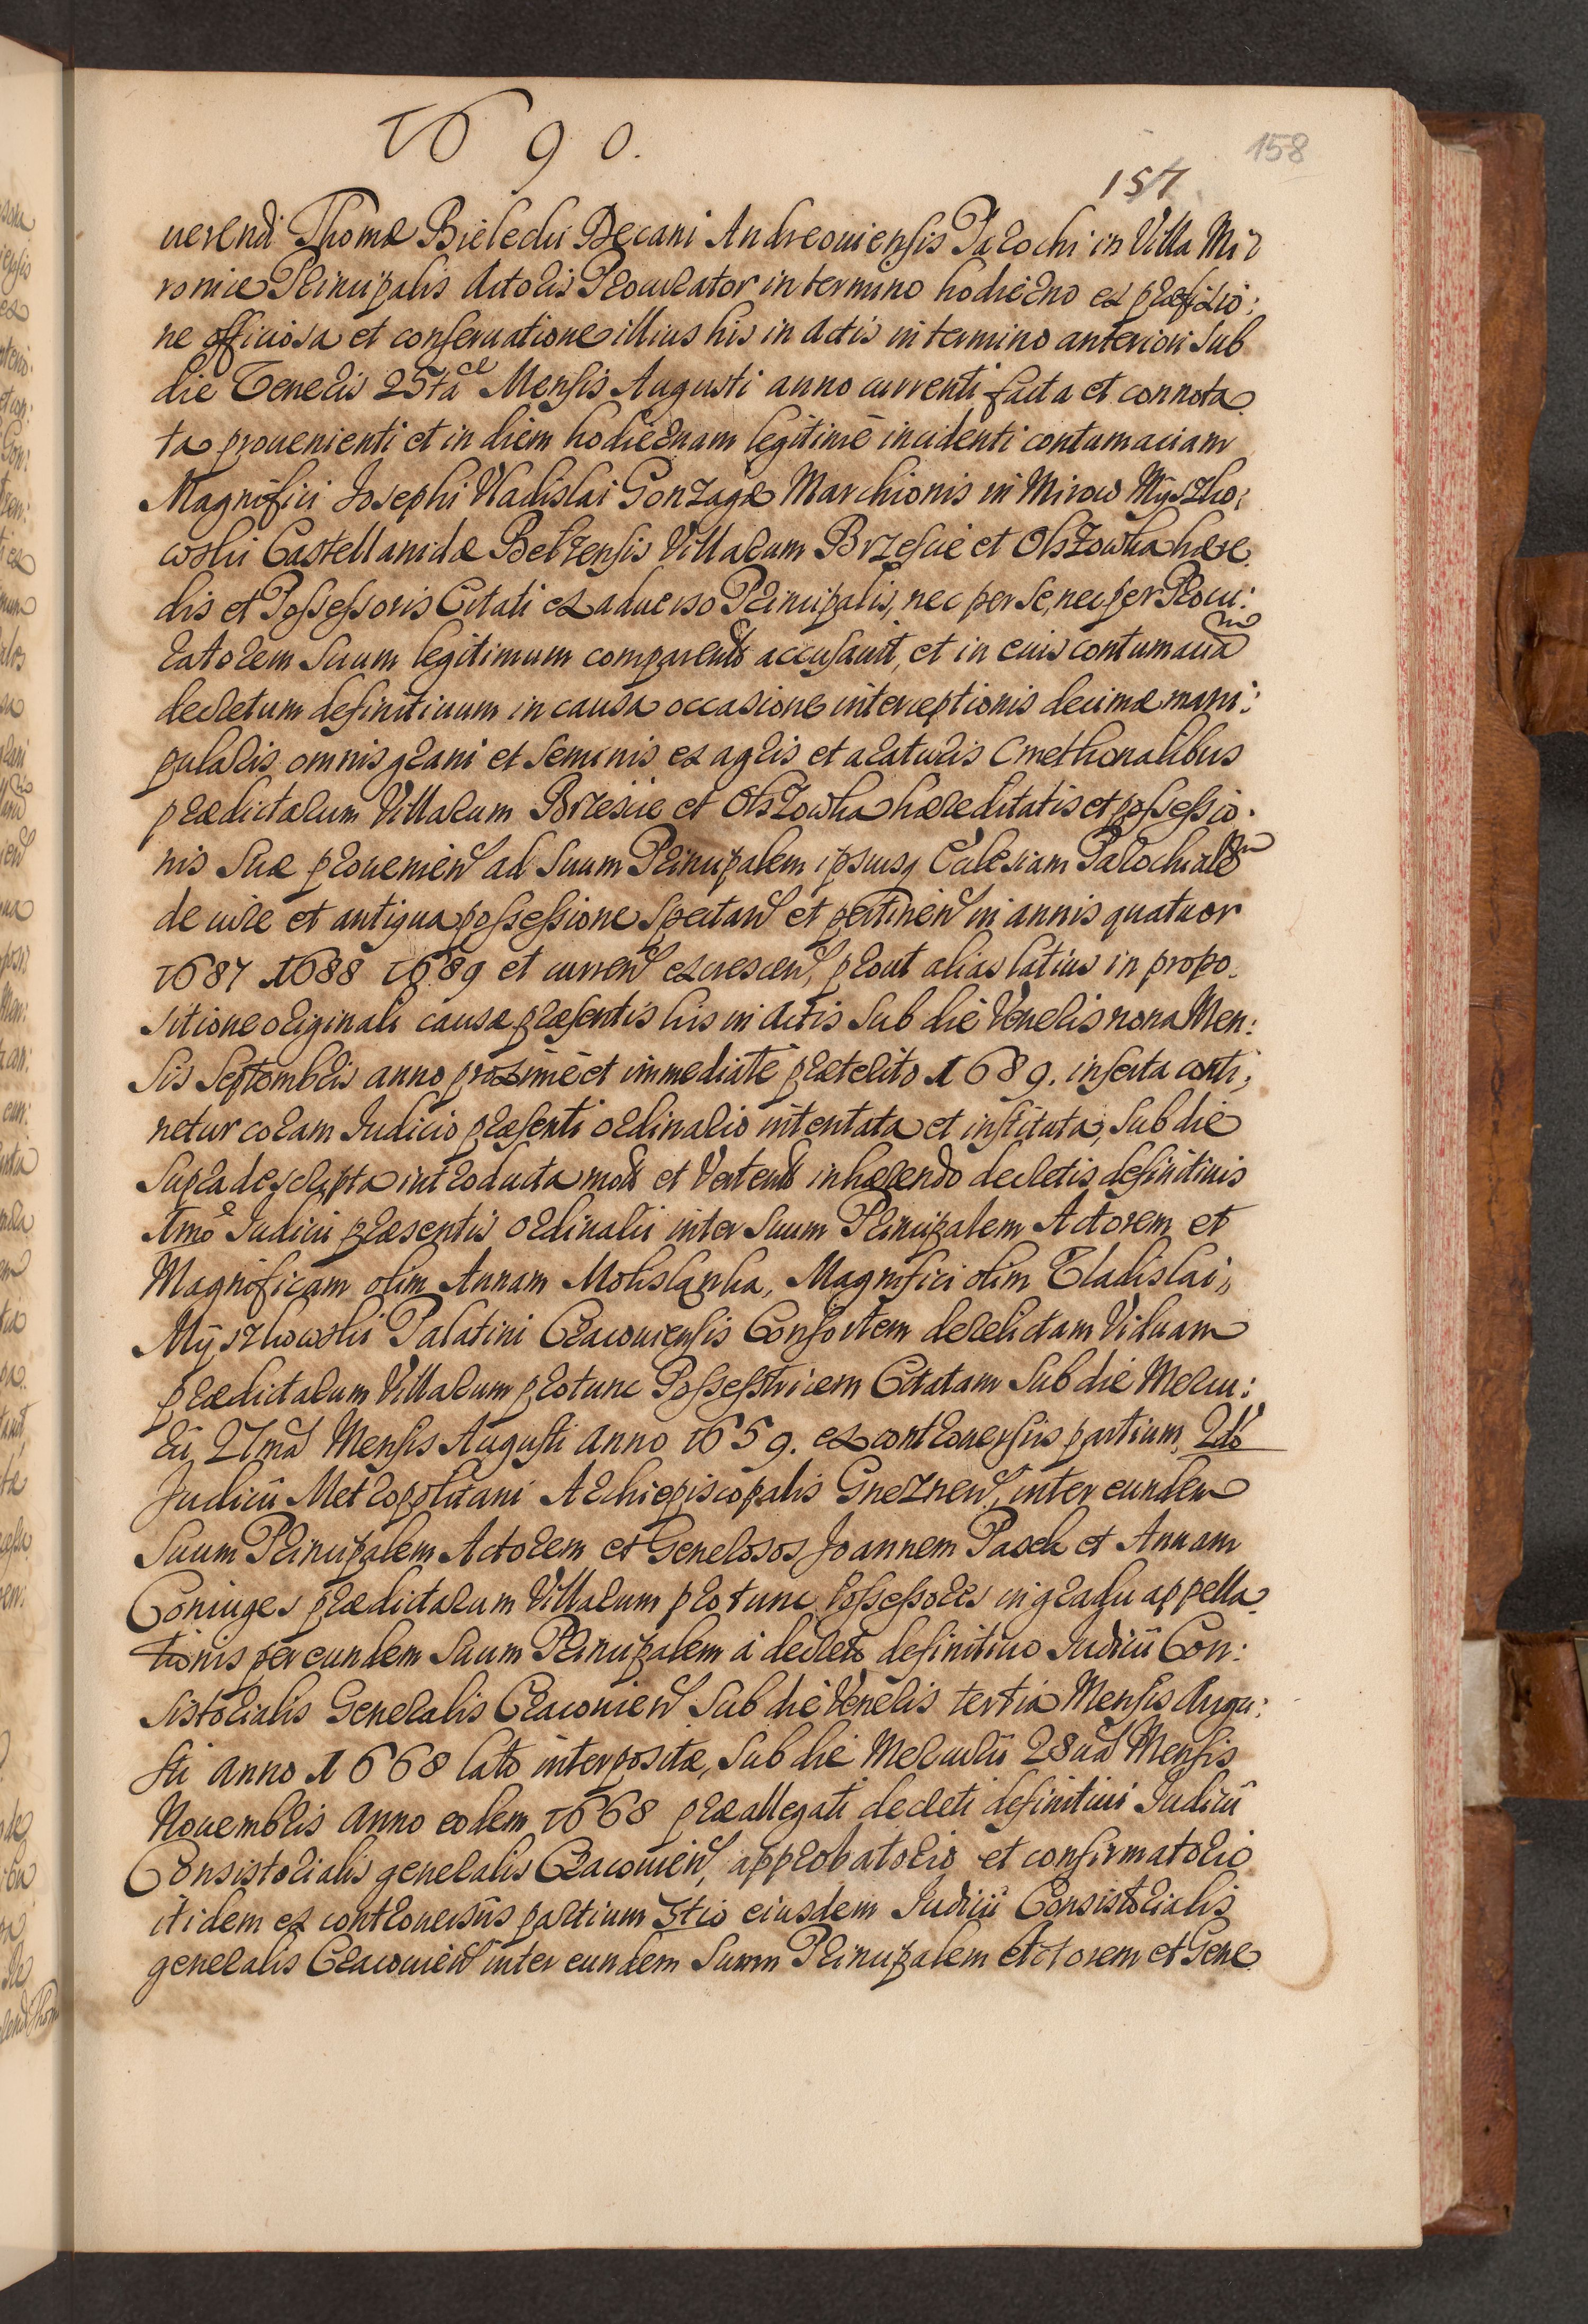 1690.
158
157
uerendi Thomæ Bielecki Decani Andreouiensis Parochi in Villa Mi
ronice Principalis Actoris Procurator in termino hodierno ex præfixio:
ne officiosa et conseruatione illius his in Actis in termino anteriori sub
die Veneris 25ta Mensis Augusti anno currenti facta et connota
ta prouenienti et in diem hodiernam legitimè incidenti contumaciam
Magnifici Josephi Vladislai Gonzagæ Marchionis in Mirow Mÿszko:
wski Castellanidæ Bełzensis Villarum Brzescie et Olszowka hære
dis et Possessoris Citati ex aduerso Principalis, nec per se, nec per Procu:
ratorem suum legitimum comparentis accusauit, et in eius contumaciam
decretum definitiuum in causa occasione interceptionis decimæ mani:
pularis omnis grani et seminis ex agris et araturis Cmethonalibus
prædictarum Villarum Brzescie et Olszowka hæreditatis et possessio.
nis suæ prouenien ad suum Principalem ipsiusq Ecclesiam Parochialem
de iure et antiqua possessione spectan et pertinen in annis quatuor
1687 1688 1689 et curren excrescen, prout alias latius in propo.
sitione originali causæ præsentis his in Actis sub die Veneris nona Men:
sis Septembris anno proximè et immediatè præterito 1689. inserta conti,
netur coram Iudicio præsenti ordinario intentata et instituta, sub die
supra descripta introducta mota et vertente inhærendo decretis definitiuis
1mo Iudicii præsentis ordinarii inter suum Principalem Actorem et
Magnificam olim Annam Mohilanka, Magnifici olim Vladislai
Mÿszkowski Palatini Cracouiensis Consortem derelictam Viduam
prædictarum Villarum pro tunc Possestricem Citatam sub die Mercu:
rii 27ma Mensis Augusti Anno 1659. ex controuersiis partium, 2do
Judicii Metropolitani Archiepiscopalis Gneznen, inter eundem
suum Principalem Actorem et Generosos Joannem Pasek et Annam
Coniuges prædictarum Villarum pro tunc Possessores in gradu appella
tionis per eundem suum Principalem à decreto definitiuo Iudicii Con:
sistorialis Generalis Cracouien sub die Veneris tertia Mensis Augu:
sti Anno 1668 lato interpositæ, sub die Mercurii 28ua Mensis
Nouembris Anno eodem 1668 præallegati decreti definitiui Iudicii
Consistorialis generalis Cracouien, approbatorio et confirmatorio
itidem ex controuersiis partium 3tio eiusdem Iudicii Consistorialis
generalis Cracouien inter eundem suum Principalem Actorem et Gene